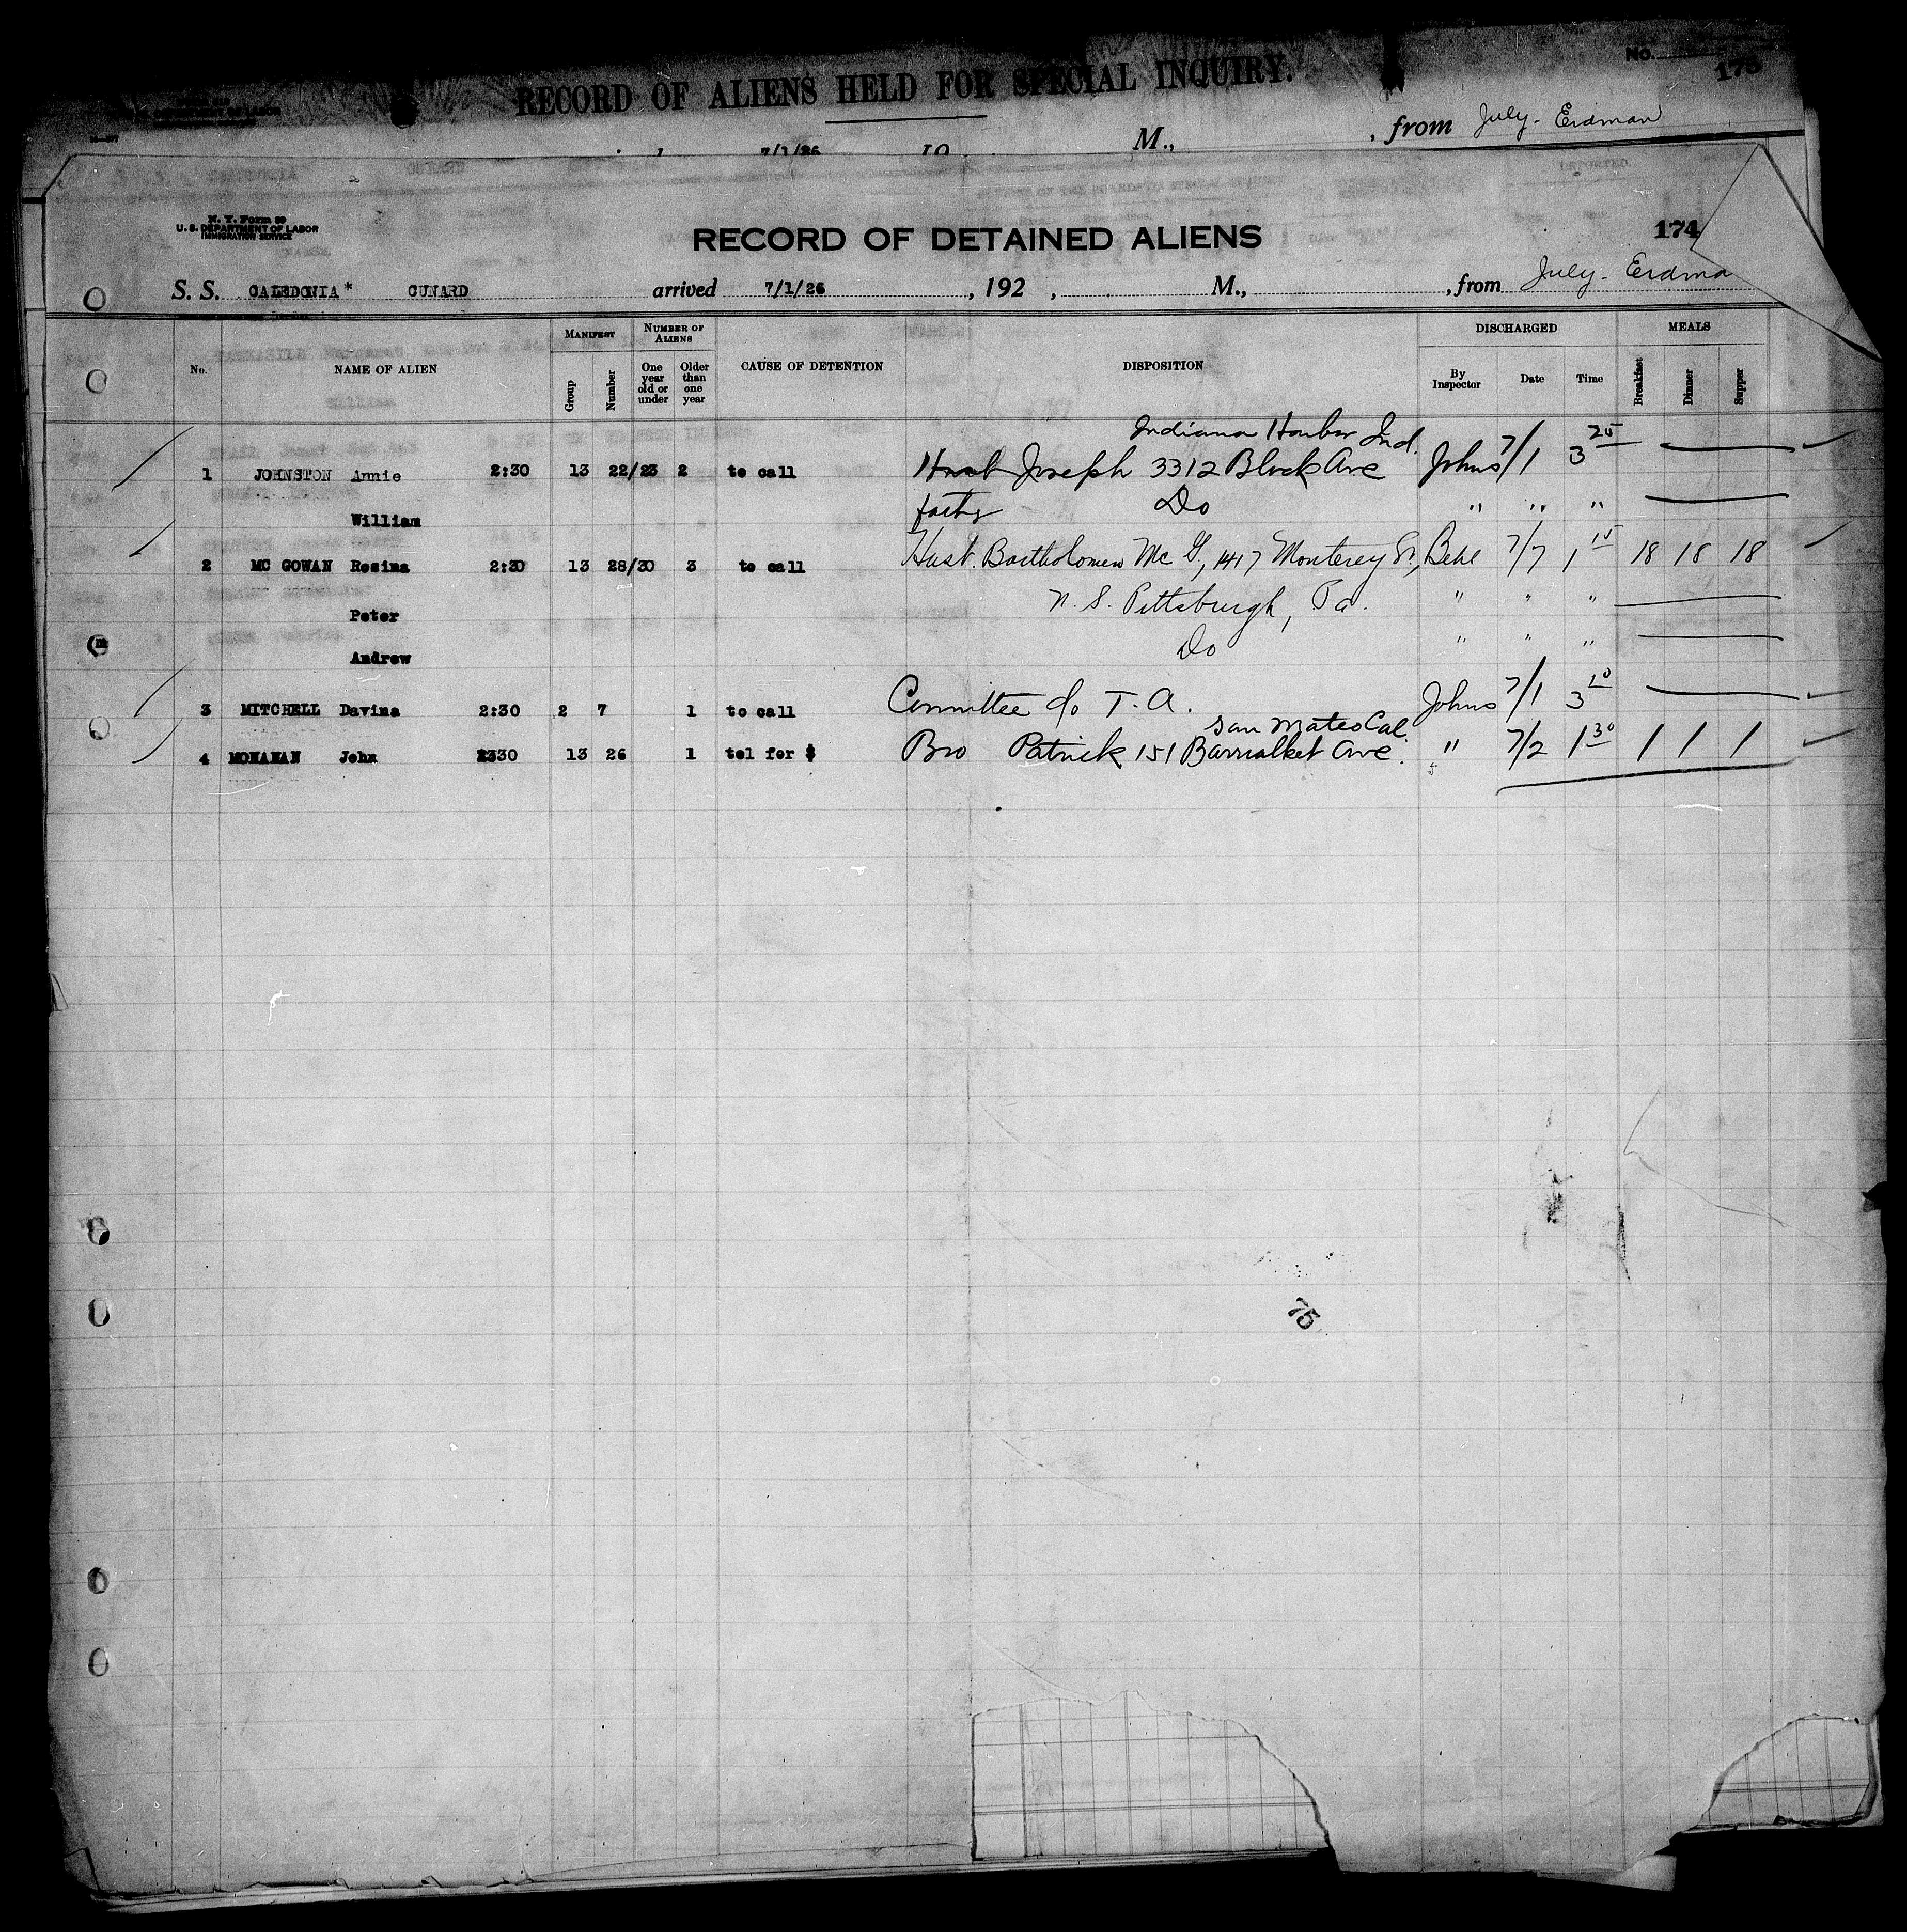 RECORD OF ALIENS HELD FOR SPECIAL INQUIRY.
No.
175
7/1/26 M., , from July - Erdman
N. Y. Form 89
U. S. DEPARTMENT OF LABOR
IMMIGRATION SERVICE
RECORD OF DETAINED ALIENS
174
S. S. CALEDONIA* CUNARD arrived 7/1/26, 192 , M., , from July - Erdma
No. NAME OF ALIEN MANIFEST NUMBER OF ALIENS CAUSE OF DETENTION DISPOSITION DISCHARGED MEALS
Group Number One year old or under Older than one year By Inspector Date Time Breakfast Dinner Supper
Indiana Harbor Ind.
1 JOHNSTON Annie 2:30 13 22/23 2 to call Husb Joseph 3312 Block Ave Johns 7/1 3 25
William Do " " "
2 MC GOWAN Rosina 2:30 13 28/30 3 to call Hust. Bartholomew Mc G, 1417 Monterey St, Behl 7/7 1 15 18 18 18
Peter N. S. Pittsburgh, Pa. " " "
Andrew Do " " "
3 MITCHELL Davina 2:30 2 7 1 to call Committee c/o T. A. Johns 7/1 3 10
San Mateo Cal.
4 MONAHAN John 2330 13 26 1 tel for $ Bro Patrick 151 Ave. " 7/2 1 30 1 1 1
75